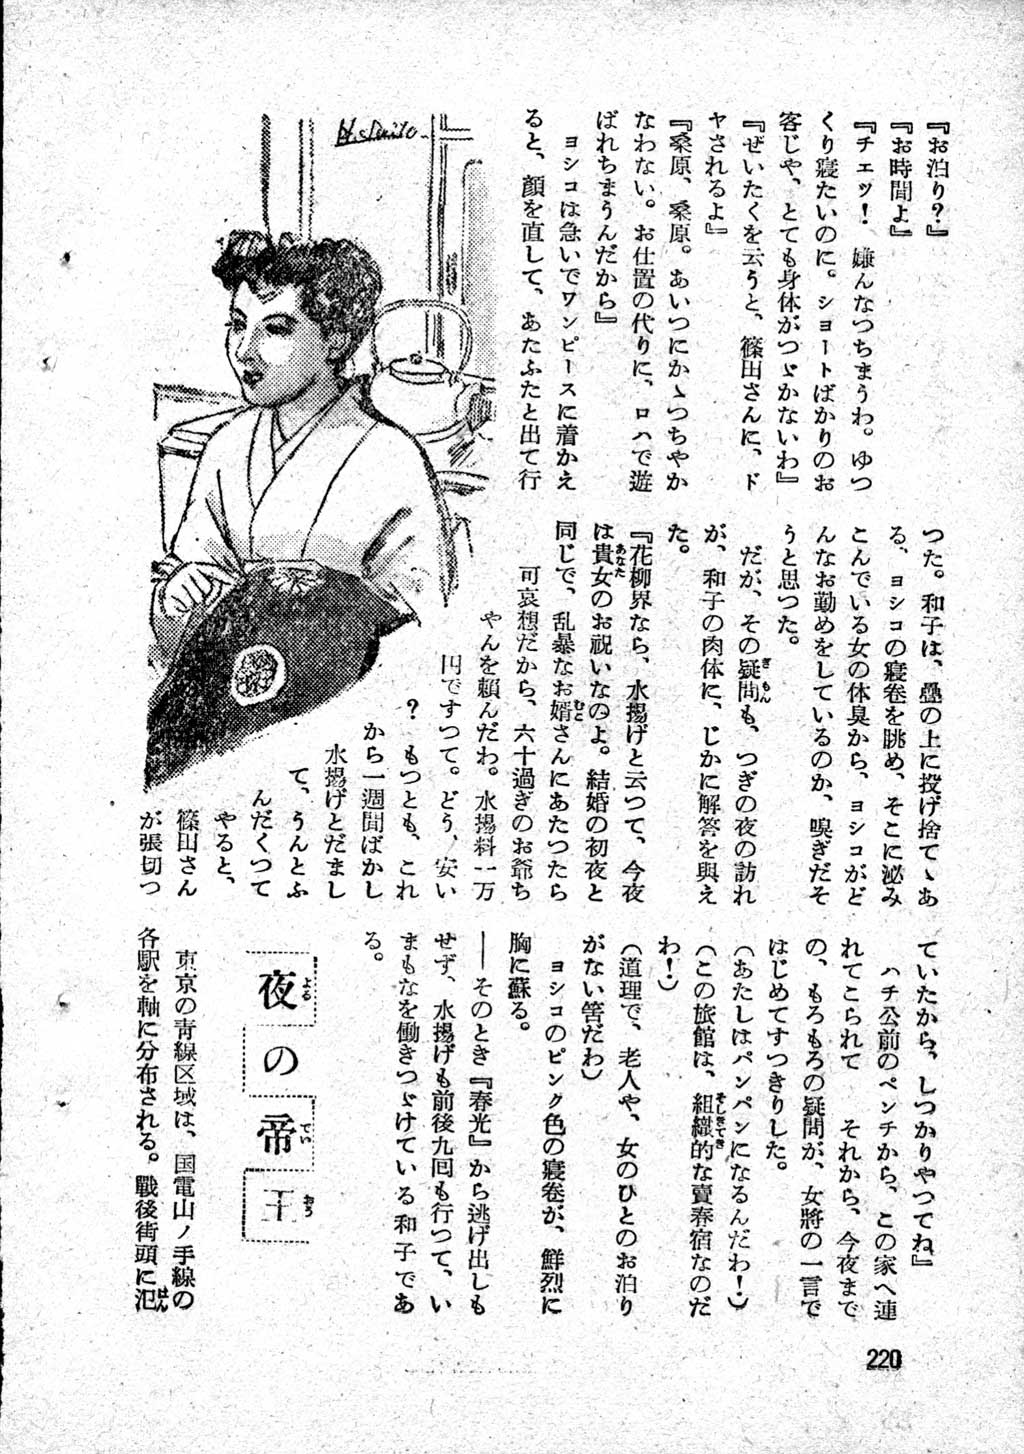 『お泊り？』
『お時間よ』
『チエッ！　嫌んなつちまうわ。ゆつ
くり寝たいのに。ショートばかりのお
客じや、とても身体がつゞかないわ』
『ぜいたくを云うと、篠田さんに、ド
ヤされるよ』
『桑原、桑原。あいつにかゝつちやか
なわない。お仕置の代りに、ロハで遊
ばれちまうんだから』
ヨシコは急いでワンピースに着かえ
ると、顔を直して、あたふたと出て行
つた。和子は、疊の上に投げ捨てゝあ
る、ヨシコの寝巻を眺め、そこに泌み
こんでいる女の体臭から、ヨシコがど
んなお勤めをしているのか、嗅ぎだそ
うと思つた。
だが、その疑問も、つぎの夜の訪れ
が、和子の肉体に、じかに解答を與え
た。
『花柳界なら、水揚げと云つて、今夜
は貴女のお祝いなのよ。結婚の初夜と
同じで、乱暴なお婿さんにあたつたら
可哀想だから、六十過ぎのお爺ち
やんを頼んだわ。水揚料一万
円ですつて。どう、安い
？　もつとも、これ
から一週間ばかし
水揚げとだまし
て、うんとふ
んだくつて
やると、
篠田さん
が張切つ
ていたから、しつかりやつてね』
ハチ公前のベンチから、この家へ連
れてこられて　それから、今夜まで
の、もろもろの疑問が、女將の一言で
はじめてすつきりした。
（あたしはパンパンになるんだわ！）
（この旅館は、組織的な賣春宿なのだ
わ！）
（道理で、老人や、女のひとのお泊り
がない筈だわ）
ヨシコのピンク色の寝巻が、鮮烈に
胸に蘇る。
――そのとき『春光』から逃げ出しも
せず、水揚げも前後九回も行つて、い
まもなを働きつゞけている和子であ
る。
夜の帝王
東京の青線区域は、国電山ノ手線の
各駅を軸に分布される。戰後街頭に氾
220